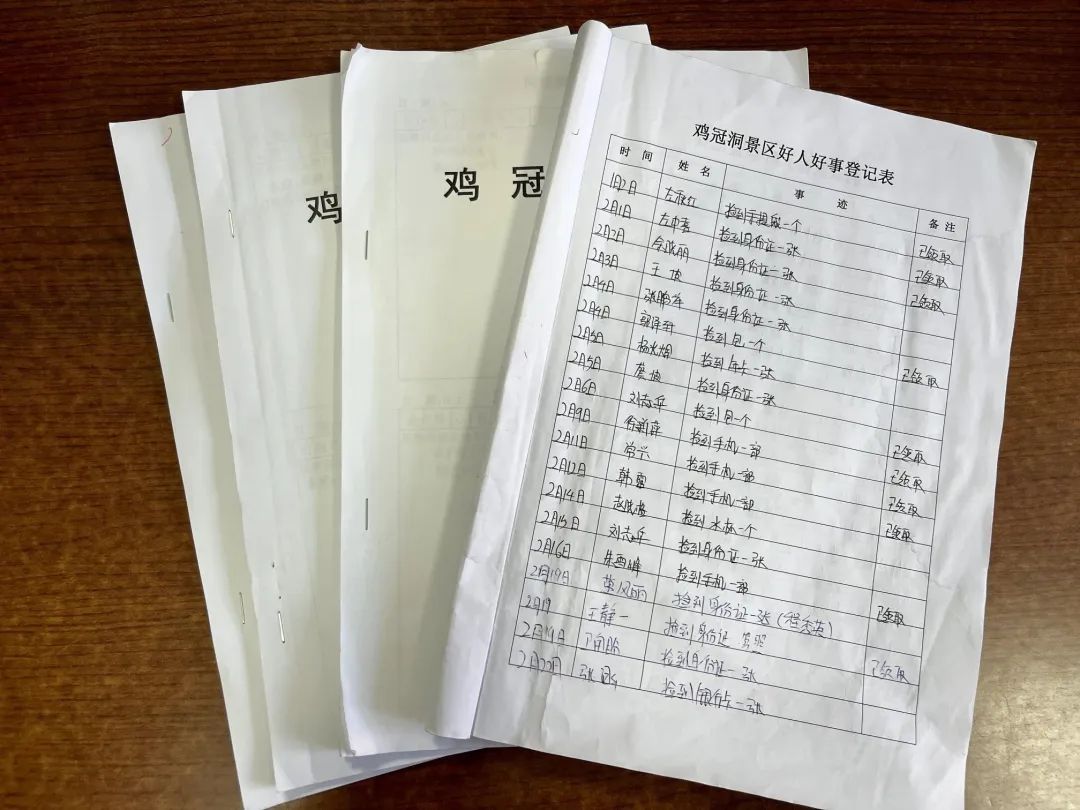 鸡
鸡 冠
鸡冠洞景区好人好事登记表
时 间 姓 名 事 迹 备 注
1月2日 左秋红 捡到手提袋一个 已领取
2月1日 捡到身份证一张 已领取
2月2日 捡到身份证一张 已领取
2月3日 捡到身份证一张
2月4日 张鹏军 捡到身份证一张
2月4日 捡到包一个 已领取
2月5日 捡到年卡一张
2月5日 捡到身份证一张
2月6日 刘志兵 捡到包一个 已领取
2月9日 捡到手机一部 已领取
2月11日 常兴 捡到手机一部 已领取
2月12日 韩露 捡到手机一部 已领取
2月14日 捡到水杯一个
2月15日 刘志兵 捡到身份证一张
2月16日 朱西峰 捡到手机一部 已领取
2月19日 黄凤丽 捡到身份证一张(程秀英)
2月19 王静一 捡到身份证 驾照 已领取
2月19日 捡到身份证一张
2月20日 捡到银行卡一张